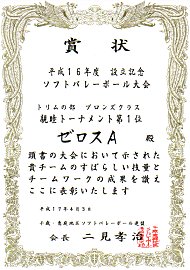 賞状
平成16年度 設立記念
ソフトバレーボール大会
トリムの部 ブロンズクラス
親睦トーナメント第1位
ゼロスA 殿
頭書の大会において示された
貴チームのすばらしい技量と
チームワークの成果を讃え
ここに表彰いたします
平成17年4月3日
千歳・恵庭地区ソフトバレーボール連盟
会長 二見孝治